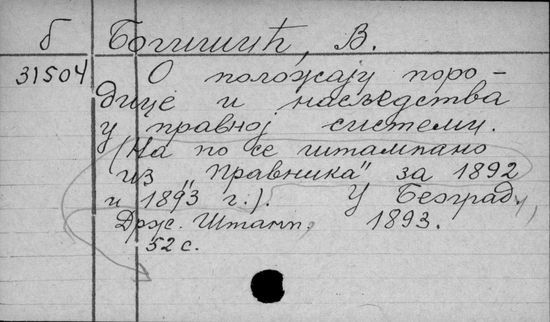 б Богишић, В.
31504 О положају поро-
дице и насљедства
у правној системи.
(На по се штампано
из „Правника" за 1892
и 1893 г.). У Београду,
Држ. Штамп, 1893.
52 с.